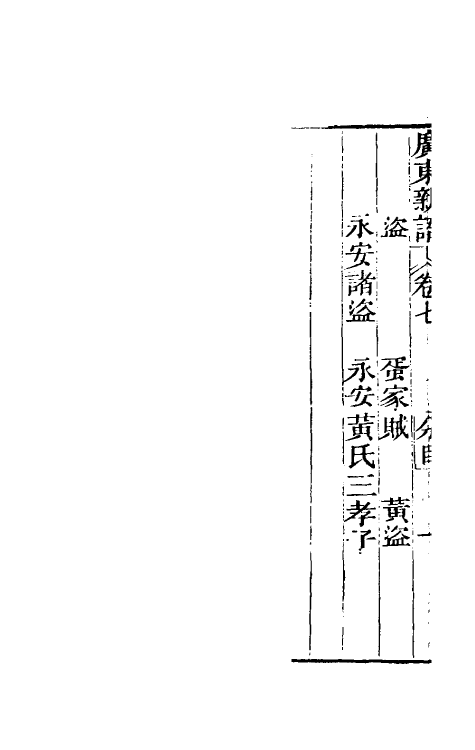 廣東新語 卷七 分目 一
盜 蛋家賊 黃盜
永安諸盜 永安黃氏三孝子